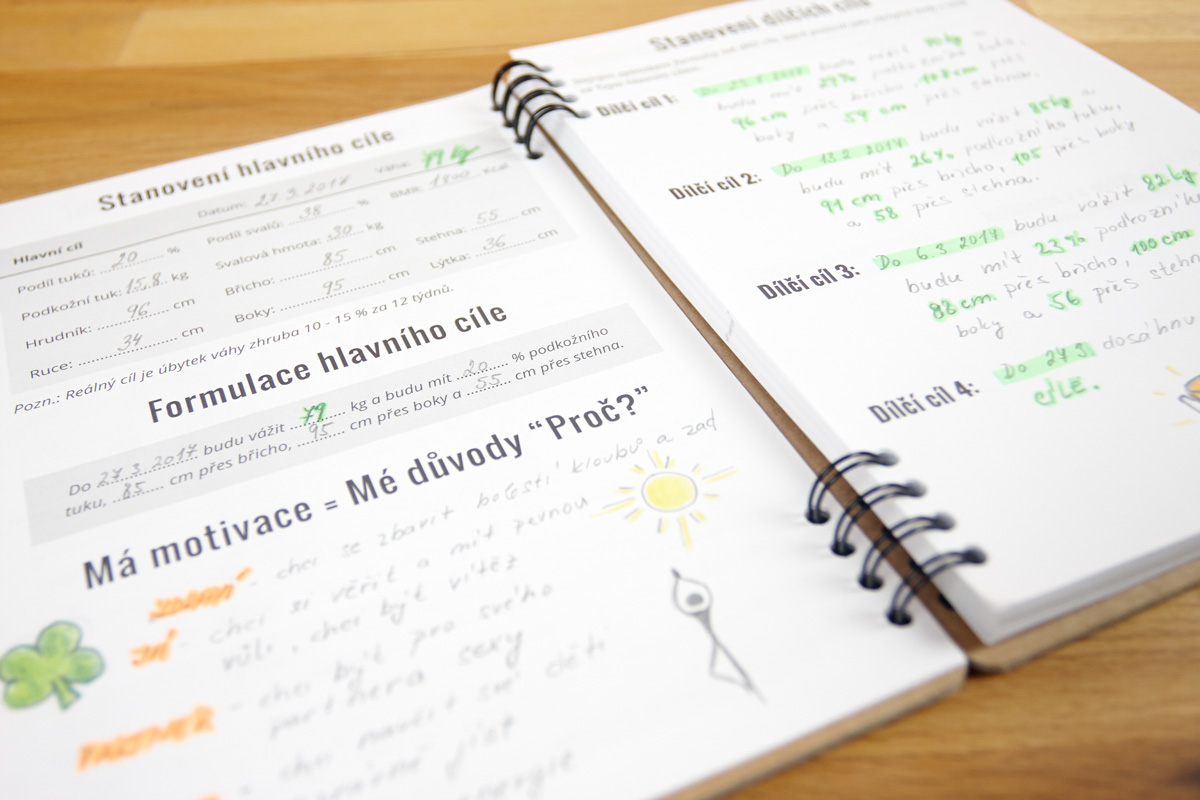 Stanovení hlavního cíle
Hlavní cíl Datum: 27.3.2017 Váha: 79 kg
Podíl tuků: 20 % Podíl svalů: 38 % BMR: 1800 Kcal
Podkožní tuk: 15,8 kg Svalová hmota: 30 kg Stehna: 55 cm
Hrudník: 96 cm Břicho: 85 cm Lýtka: 36 cm
Ruce: 34 cm Boky: 95 cm
Pozn.: Reálný cíl je úbytek váhy zhruba 10 - 15 % za 12 týdnů.
Formulace hlavního cíle
Do 27 3 2017 budu vážit 79 kg a budu mít 20 % podkožního
tuku, 85 cm přes břicho, 95 cm přes boky a 55 cm přes stehna.
Má motivace = Mé důvody “Proč?”
- chci se zbavit bolestí kloubů a zad
JÁ - chci si věřit a mít pevnou
vůli, chci být vítěz
PARTNER - chci být pro svého
partnera sexy
chci naučit své děti
jíst
energie
Stanovení dílčích cílů
Dílčí cíl 1: budu vážit kg
budu mít 29% podkožního tuku,
96 cm přes břicho, 108 cm přes
boky a 59 cm přes stehna.
Dílčí cíl 2: Do 13.2 2017 budu vážit 85 kg a
budu mít 26% podkožního tuku,
91 cm přes břicho, 105 přes boky
a 58 přes stehna.
Dílčí cíl 3: Do 6.3 2017 budu vážit 82 kg
budu mít 23% podkožního
88 cm přes břicho, 100 cm
boky a 56 přes stehna
Dílčí cíl 4: Do 27 3. dosáhnu
cíle.